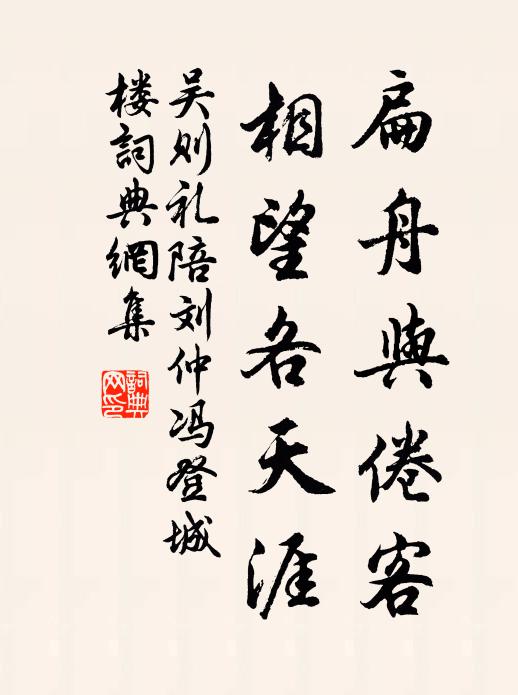 扁舟與倦客
相望各天涯
吴则礼陪刘仲冯登城
楼詞典網集
詞典
网印